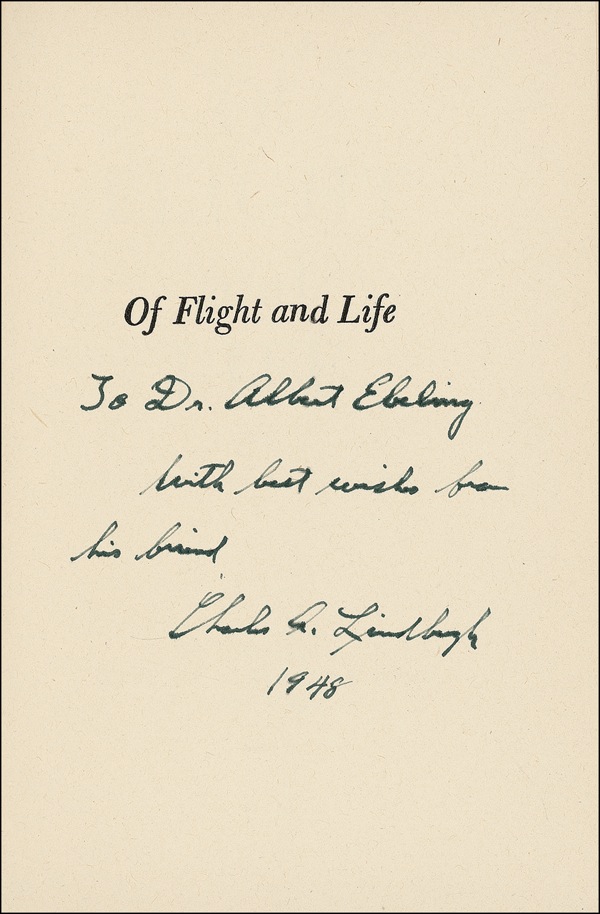 Of Flight and Life
To Dr. Albert Ebeling
With best wishes from
his friend
Charles A. Lindbergh
1948